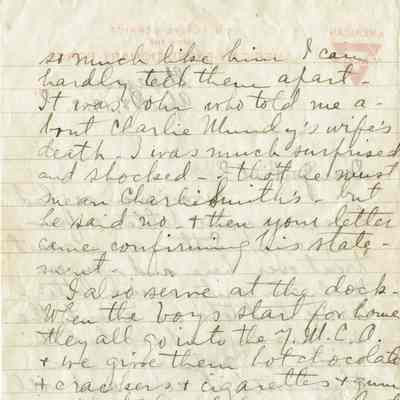 so much like him I can
hardly tell them apart -
It was John who told me a-
bout Charlie Mundy's wife's
death. I was much surprised
and shocked - that he must
mean Charlie Smith's - but
he said no + then your letter
came confirming his state-
ment -
I also serve at the dock -
When the boys start for home
they all go into the Y.M.C.A.
+ we give them hot chocolate
+ crackers + cigarettes + gum